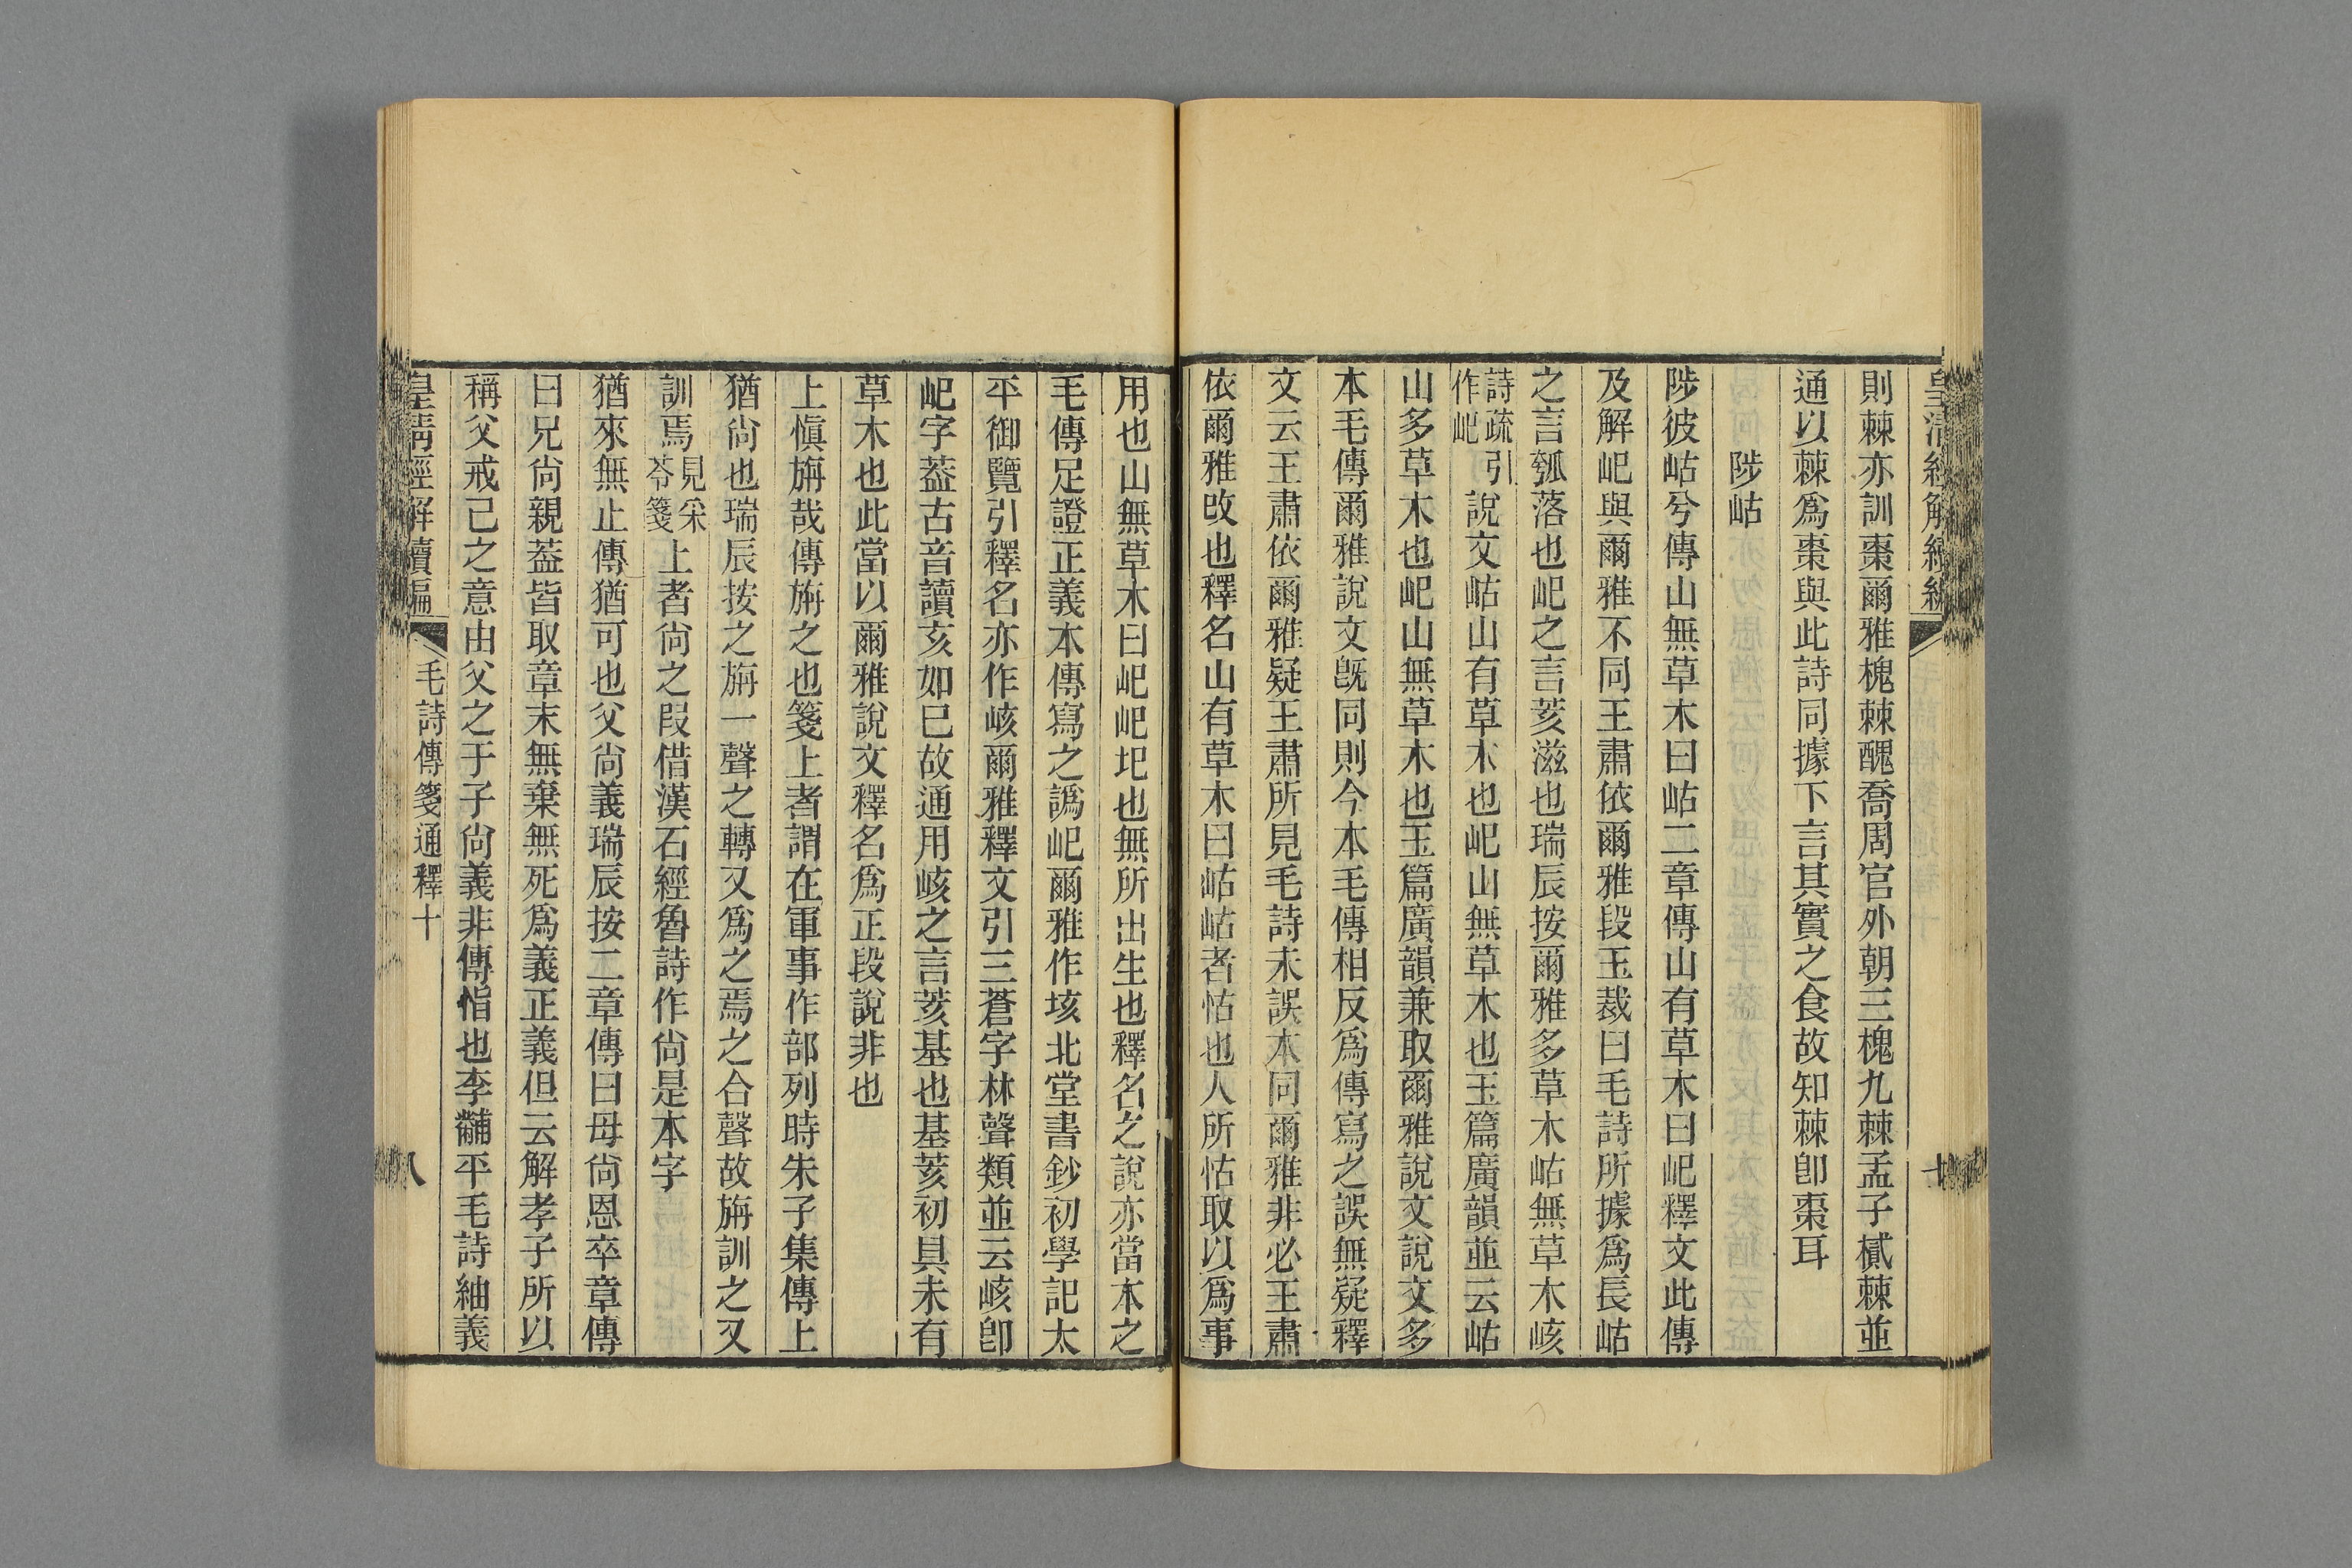 則棘亦訓棗爾雅槐棘醜喬周官外朝三槐九棘孟子樲棘並
通以棘爲棗與此詩同據下言其實之食故知棘卽棗耳
陟岵
陟彼岵兮傳山無草木曰岵二章傳山有草木曰屺釋文此傳
及解屺與爾雅不同王肅依爾雅段玉裁曰毛詩所據爲長岵
之言瓠落也屺之言荄滋也瑞辰按爾雅多草木岵無草木峐
詩疏引作屺說文岵山有草木也屺山無草木也玉篇廣韻並云岵
山多草木也屺山無草木也玉篇廣韻兼取爾雅說文說文多
本毛傳爾雅說文旣同則今本毛傳相反爲傳寫之誤無疑釋
文云王肅依爾雅疑王肅所見毛詩未誤本同爾雅非必王肅
依爾雅改也釋名山有草木曰岵岵者怙也人所怙取以爲事
用也山無草木曰屺屺圯也無所出生也釋名之說亦當本之
毛傳足證正義本傳寫之譌屺爾雅作垓北堂書鈔初學記太
平御覽引釋名亦作峐爾雅釋文引三蒼字林聲類並云峐卽
屺字葢古音讀亥如巳故通用峐之言荄基也基荄初具未有
草木也此當以爾雅說文釋名爲正段說非也
上愼旃哉傳旃之也箋上者謂在軍事作部列時朱子集傳上
猶尙也瑞辰按之旃一聲之轉又爲之焉之合聲故旃訓之又
訓焉見采苓箋上者尙之叚借漢石經魯詩作尙是本字
猶來無止傳猶可也父尙義瑞辰按二章傳曰母尙恩卒章傳
曰兄尙親葢皆取章末無棄無死爲義正義但云解孝子所以
稱父戒己之意由父之于子尙義非傳恉也李黼平毛詩紬義
皇淸經解續編
毛詩傳箋通釋十
八